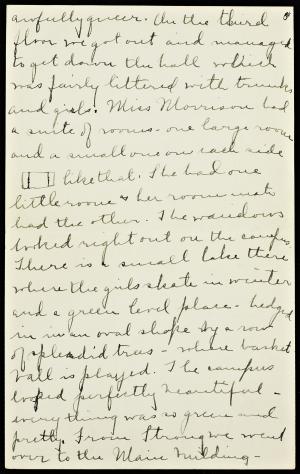 awfully queer. On the third
floor we got out and managed
to get down the hall which
was fairly littered with trunks
and girls. Miss Morrison had
a suite of rooms - one large room
and a small one on each side
like that. She had one
little room & her room mate
had the other. The windows
looked right out on the campus.
There is a small lake there
where the girls skate in winter
and a green level place - hedged
in in an oval shape by a row
of splendid trees - where basket
ball is played. The campus
looked perfectly beautiful -
everything was so green and
pretty. From Strong we went
over to the Main building -